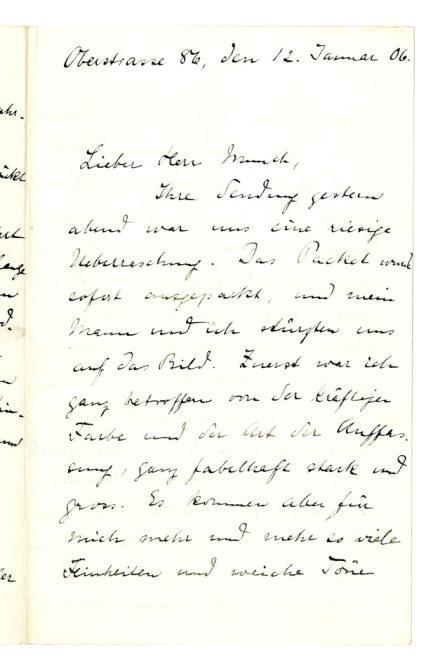 Oberstrasse 86, den 12. Januar 06.
Lieber Herr Munch,
Ihre Sendung gestern
abend war uns eine riesige
Ueberraschung. Das Packet wurde
sofort ausgepackt, und mein
Mann und ich stürzten uns
auf das Bild. Zuerst war ich
ganz betroffen von der kräftigen
Farbe und der Art der Auffas-
sung, ganz fabelhaft stark und
gross. Es kommen aber für
mich mehr und mehr so viele
Feinheiten und weiche Töne